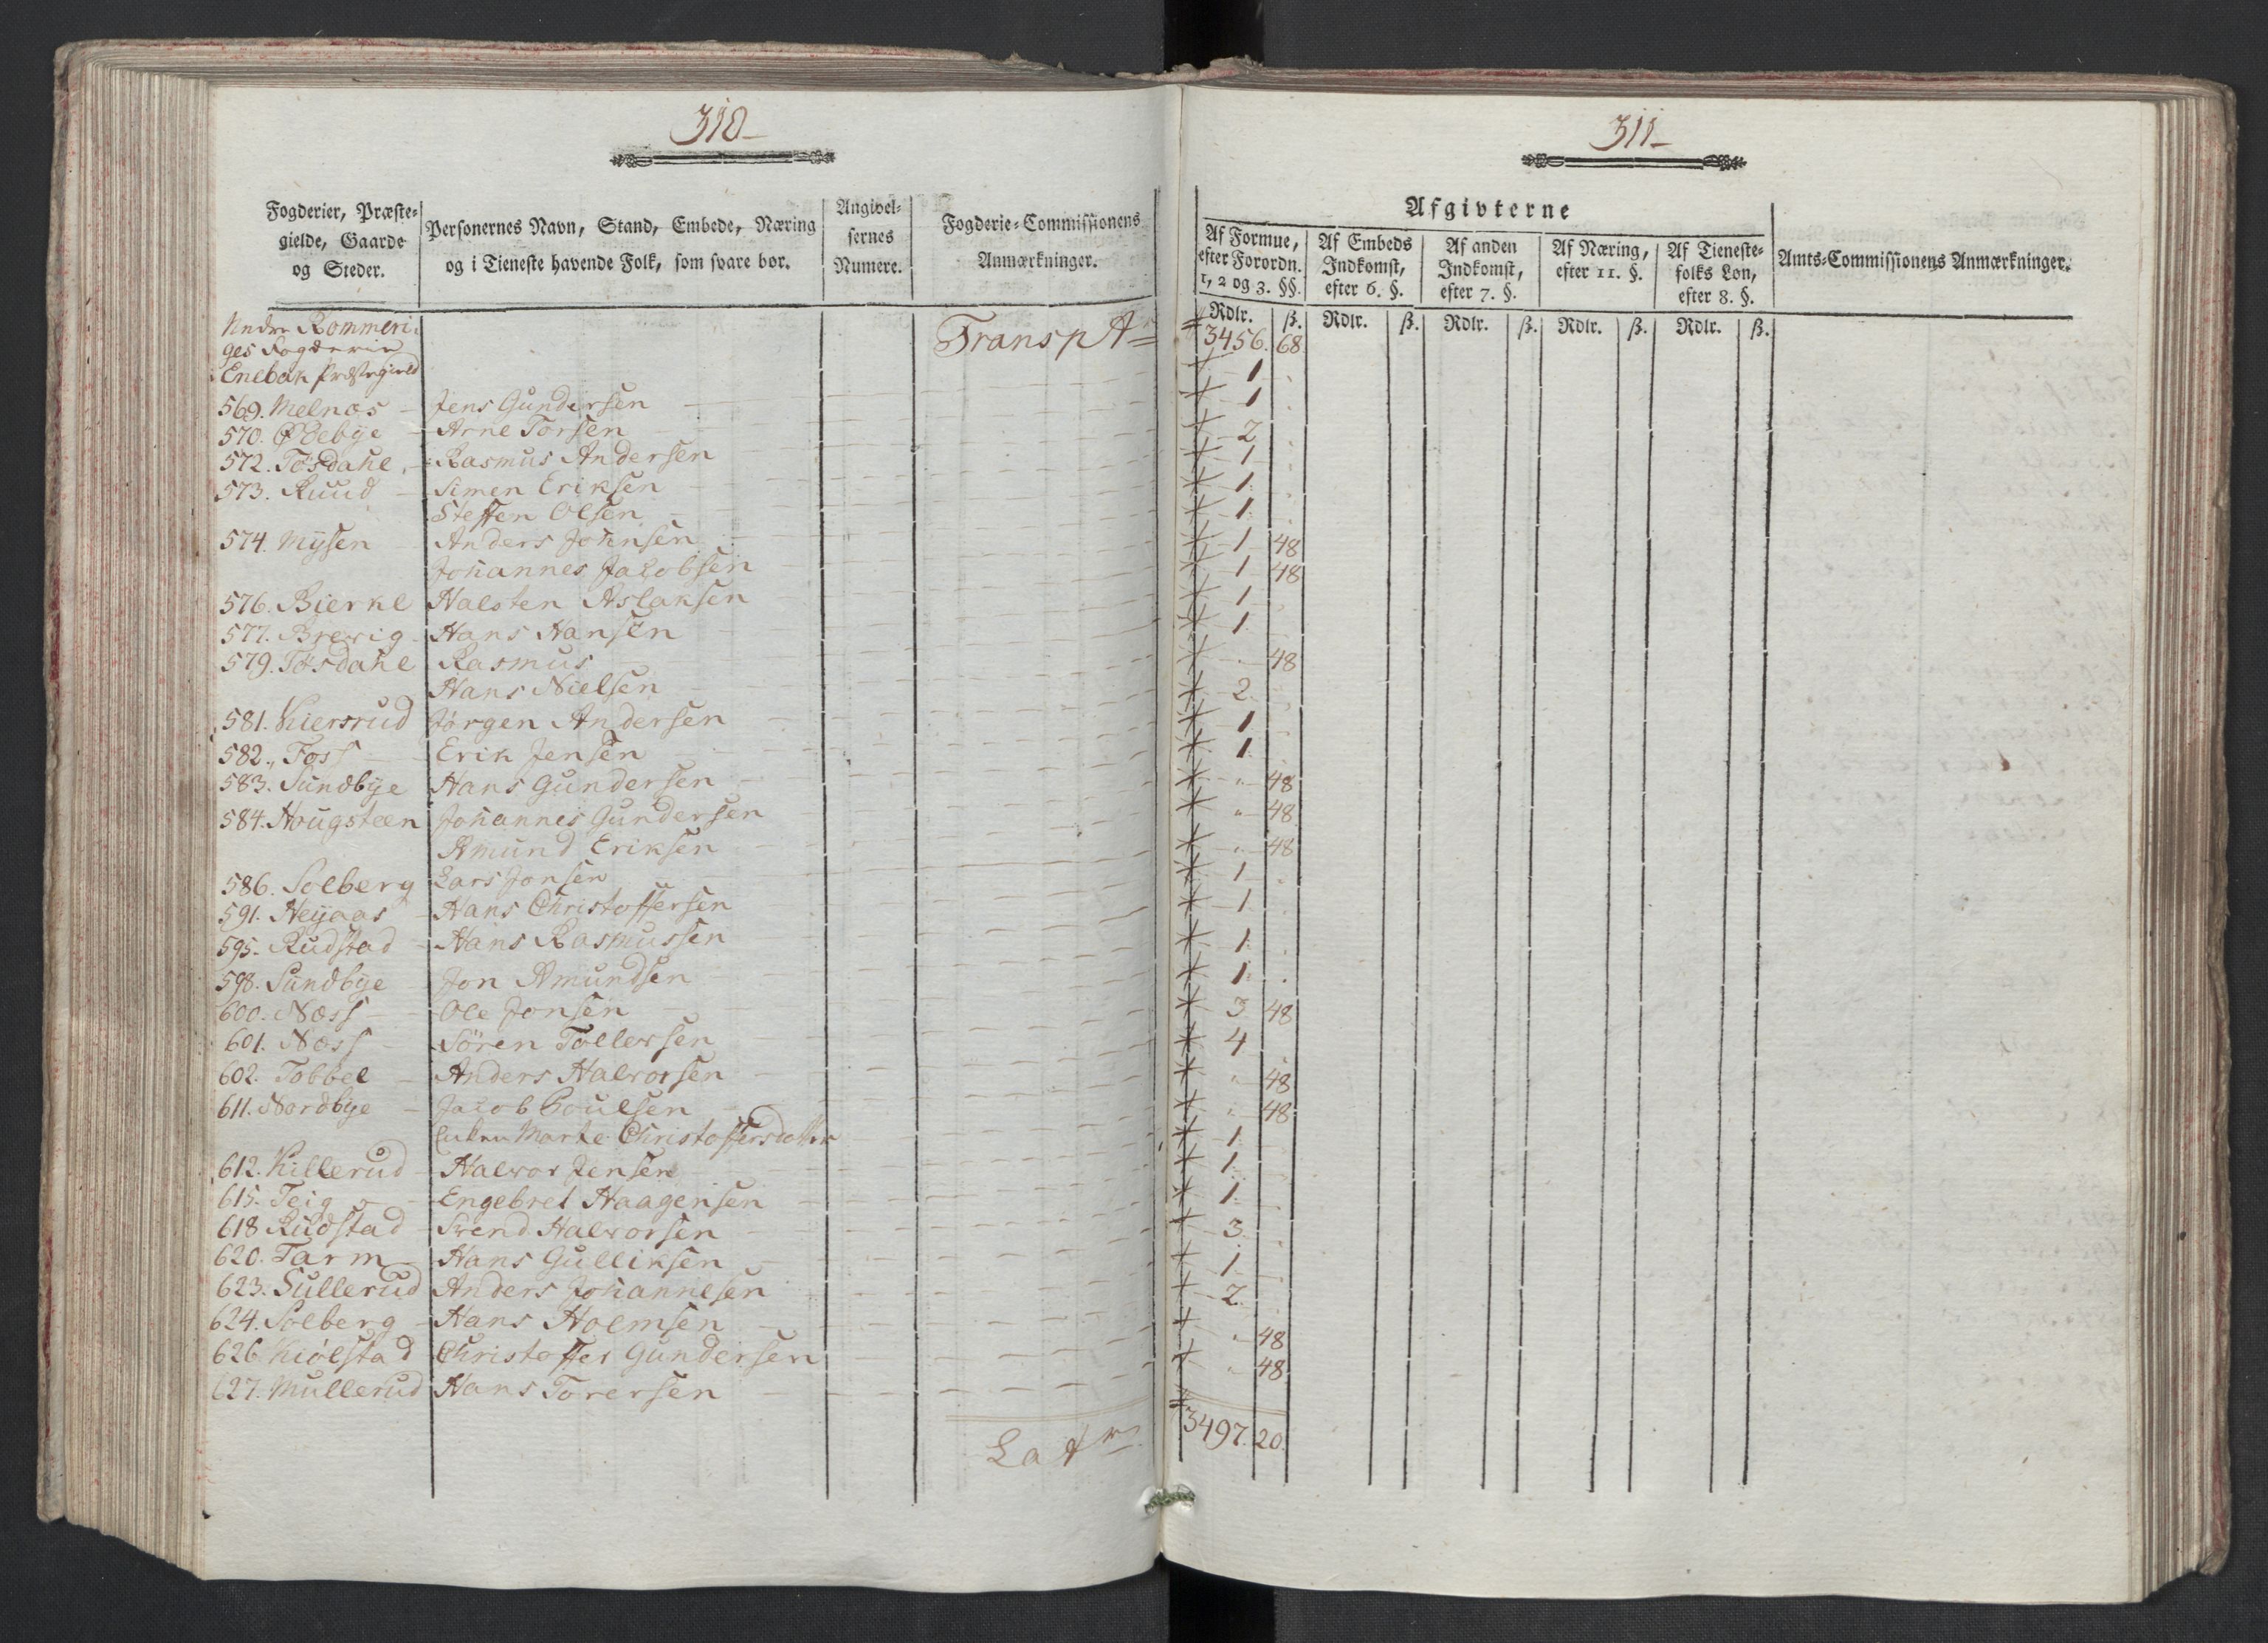 310
Fogderier, Præste-
gielde, Gaarde
og Steder.
Personernes Navn, Stand, Embede, Næring
og i Tieneste havende Folk, som svare bør.
Angivel-
sernes
Numere.
Fogderie-Commissionens
Anmærkninger.
Nedre Rommeri-
ges Fogderie
Enebak Præstegield
Transpt
569. Melnæs Jens Gundersen
570. Ødebye Arne Torsen
572. Tøsdahl Rasmus Andersen
573. Ruud Simen Eriksen
Steffen Olsen
574. Mysen Anders Johnsen
Johannes Jacobsen
576. Bierke Halsten Aslaksen
577. Brevig Hans Hansen
579. Tøsdahl Rasmus
Hans Nielsen
581. Kiersrud Jørgen Andersen
582. Foss Erik Jensen
583. Sundbye Hans Gundersen
584. Hougsteen Johannes Gundersen
Amund Eriksen
586. Solberg Lars Jonsen
591. Heyaas Hans Christoffersen
595. Rudstad Hans Rasmussen
598. Sundbye Jon Amundsen
600. Næss Ole Jonsen
601. Næss Søren Tollersen
602. Tobbel Anders Halvorsen
611. Nordbye Jacob Poulsen
Enken Marte Christoffersdatter
612. Killerud Halvor Jensen
615. Teig Engebret Haagensen
618 Rudstad Svend Halvorsen
620. Tarm Hans Gulliksen
623. Sullerud Anders Johannesen
624. Solberg Hans Holmsen
626 Kiølstad Christoffer Gundersen
627. Mullerud Hans Torersen
Latr
311
Afgivterne
Af Formue,
efter Forordn.
1, 2 og 3. §§.
Af Embeds
Indkomst,
efter 6. §.
Af anden
Indkomst,
efter 7. §.
Af Næring,
efter 11. §.
Af Tieneste-
folks Løn,
efter 8. §.
Amts-Commissionens Anmærkninger.
Rdlr. ß. Rdlr. ß. Rdlr. ß. Rdlr. ß. Rdlr. ß.
3456. 68
1
1
2
1
1
1
1 48
1 48
1
1
48
2
1
1
48
48
48
1
1
1
1
3 48
4
48
48
1
1
1
3
1
2
48
48
3497. 20